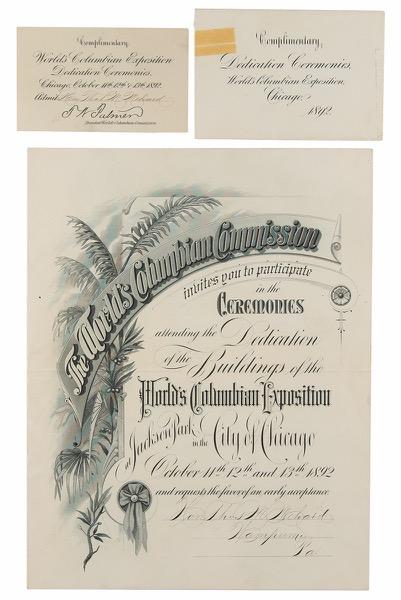 Complimentary.
World's Columbian Exposition
Dedication Ceremonies,
Chicago, October 11th 12th & 13th 1892.
Admit
T. W. Palmer
President World's Columbian Commission.
Complimentary,
Dedication Ceremonies,
World's Columbian Exposition,
Chicago.
1892.
The World's Columbian Commission
invites you to participate
in the
CEREMONIES
attending the Dedication
of the Buildings of the
World's Columbian Exposition
at Jackson Park in the City of Chicago
October 11th 12th and 13th 1892
and requests the favor of an early acceptance.
Pa